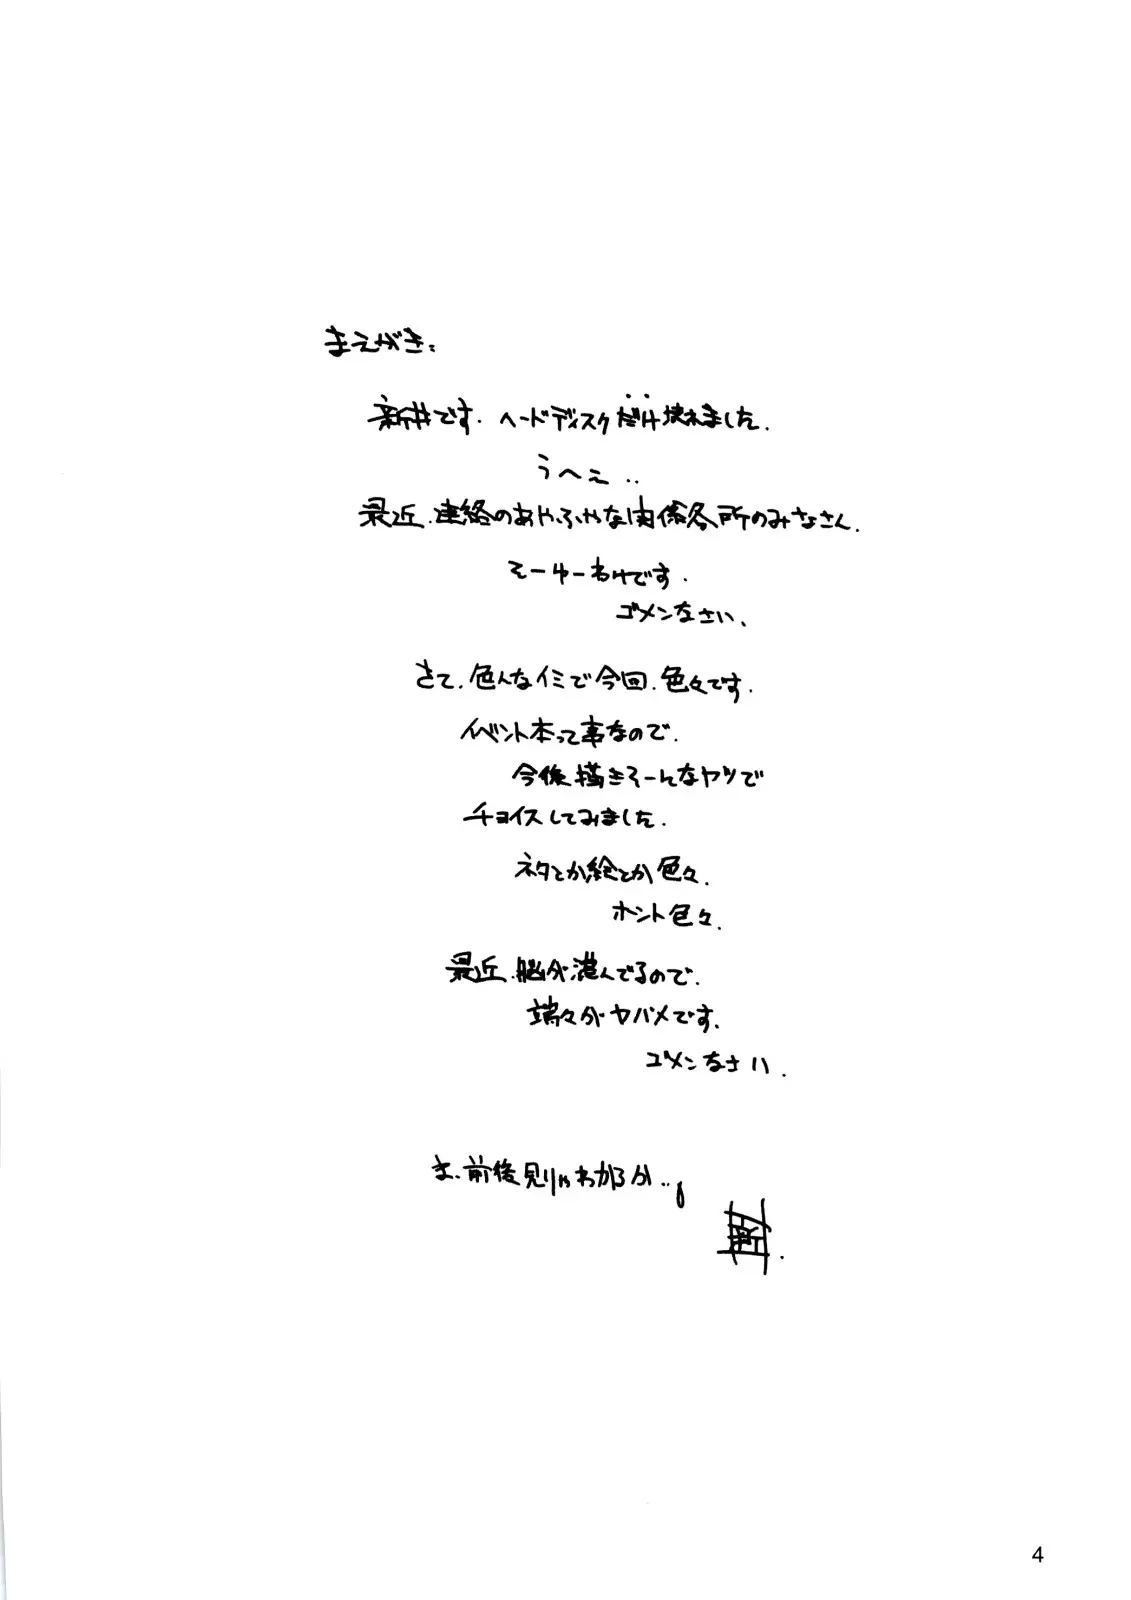 まえがき:
新井です. ヘードディスクだけ壊れました.
うへぇ..
最近.連絡のあやふやな関係各所のみなさん.
そーゆーわけです.
ゴメンなさい.
さて.色んなイミで今回.色々です.
イベント本って事なので.
今後描きそーんなヤツで
チョイスしてみました.
ネタとか絵とか色々.
ホント色々.
最近.脳が澱んでるので.
端々がヤバメです.
ゴメンなさい.
ま.前後見りゃわかるか..
4